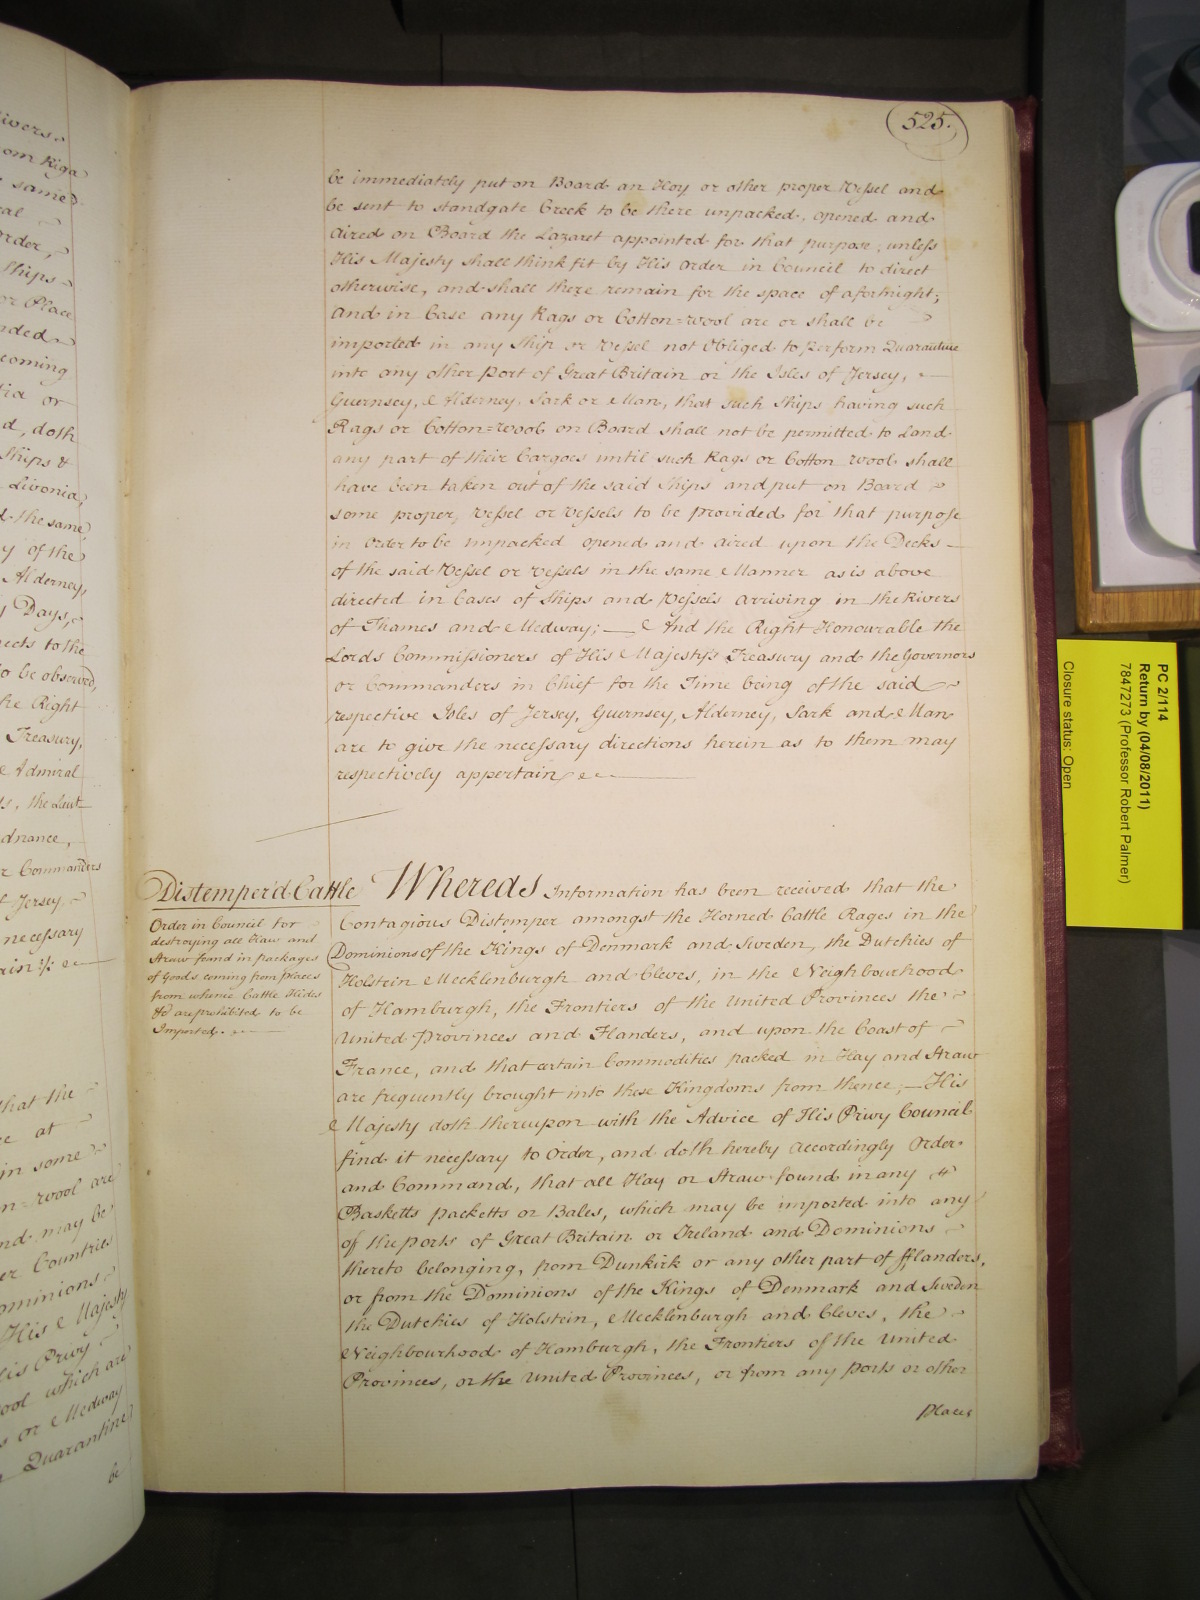 525.
be immediately put on Board an Hoy or other proper Vessel and
be sent to Standgate Creek to be there unpacked, opened and
Aired on Board the Lazaret appointed for that purpose, unless
His Majesty shall think fit by His Order in Council to direct
otherwise, and shall there remain for the space of a fortnight;
And in Case any Rags or Cotton=wool are or shall be
imported in any Ship or Vessel not Obliged to perform Quarantine
into any other Port of Great Britain or the Isles of Jersey,
Guernsey, Alderney, Sark or Man, that such Ships having such
Rags or Cotton=wool on Board shall not be permitted to Land
any part of their Cargoes until such Rags or Cotton wool shall
have been taken out of the said Ships and put on Board
some proper Vessel or Vessels to be provided for that purpose
in Order to be unpacked opened and aired upon the Decks
of the said Vessel or Vessels in the same Manner as is above
directed in Cases of Ships and Vessels arriving in the Rivers
of Thames and Medway; And the Right Honourable the
Lords Commissioners of His Majesty's Treasury and the Governors
or Commanders in Chief for the Time being of the said
respective Isles of Jersey, Guernsey, Alderney, Sark and Man
are to give the necessary directions herein as to them may
respectively appertain
Distemper'd Cattle
Order in Council for
destroying all Hay and
Straw found in packages
of Goods coming from places
from whence Cattle Hides
&c are prohibited to be
Imported.
Whereas Information has been received that the
Contagious Distemper amongst the Horned Cattle Rages in the
Dominions of the Kings of Denmark and Sweden, the Dutchies of
Holstein Mecklenburgh and Cleves, in the Neighbourhood
of Hamburgh, the Frontiers of the United Provinces the
United Provinces and Flanders, and upon the Coast of
France, and that certain Commodities packed in Hay and Straw
are frequently brought into these Kingdoms from thence; His
Majesty doth thereupon with the Advice of His Privy Council
find it necessary to Order, and doth hereby accordingly Order
and Command, that all Hay or Straw found in any
Basketts packetts or Bales, which may be imported into any
of the ports of Great Britain or Ireland and Dominions
thereto belonging, from Dunkirk or any other part of fflanders,
or from the Dominions of the Kings of Denmark and Sweden
the Dutchies of Holstein, Mecklenburgh and Cleves, the
Neighbourhood of Hamburgh, the Frontiers of the United
Provinces, or the United Provinces, or from any ports or other
places
PC 2/114
Return by (04/08/2011)
7847273 (Professor Robert Palmer)
Closure status: Open